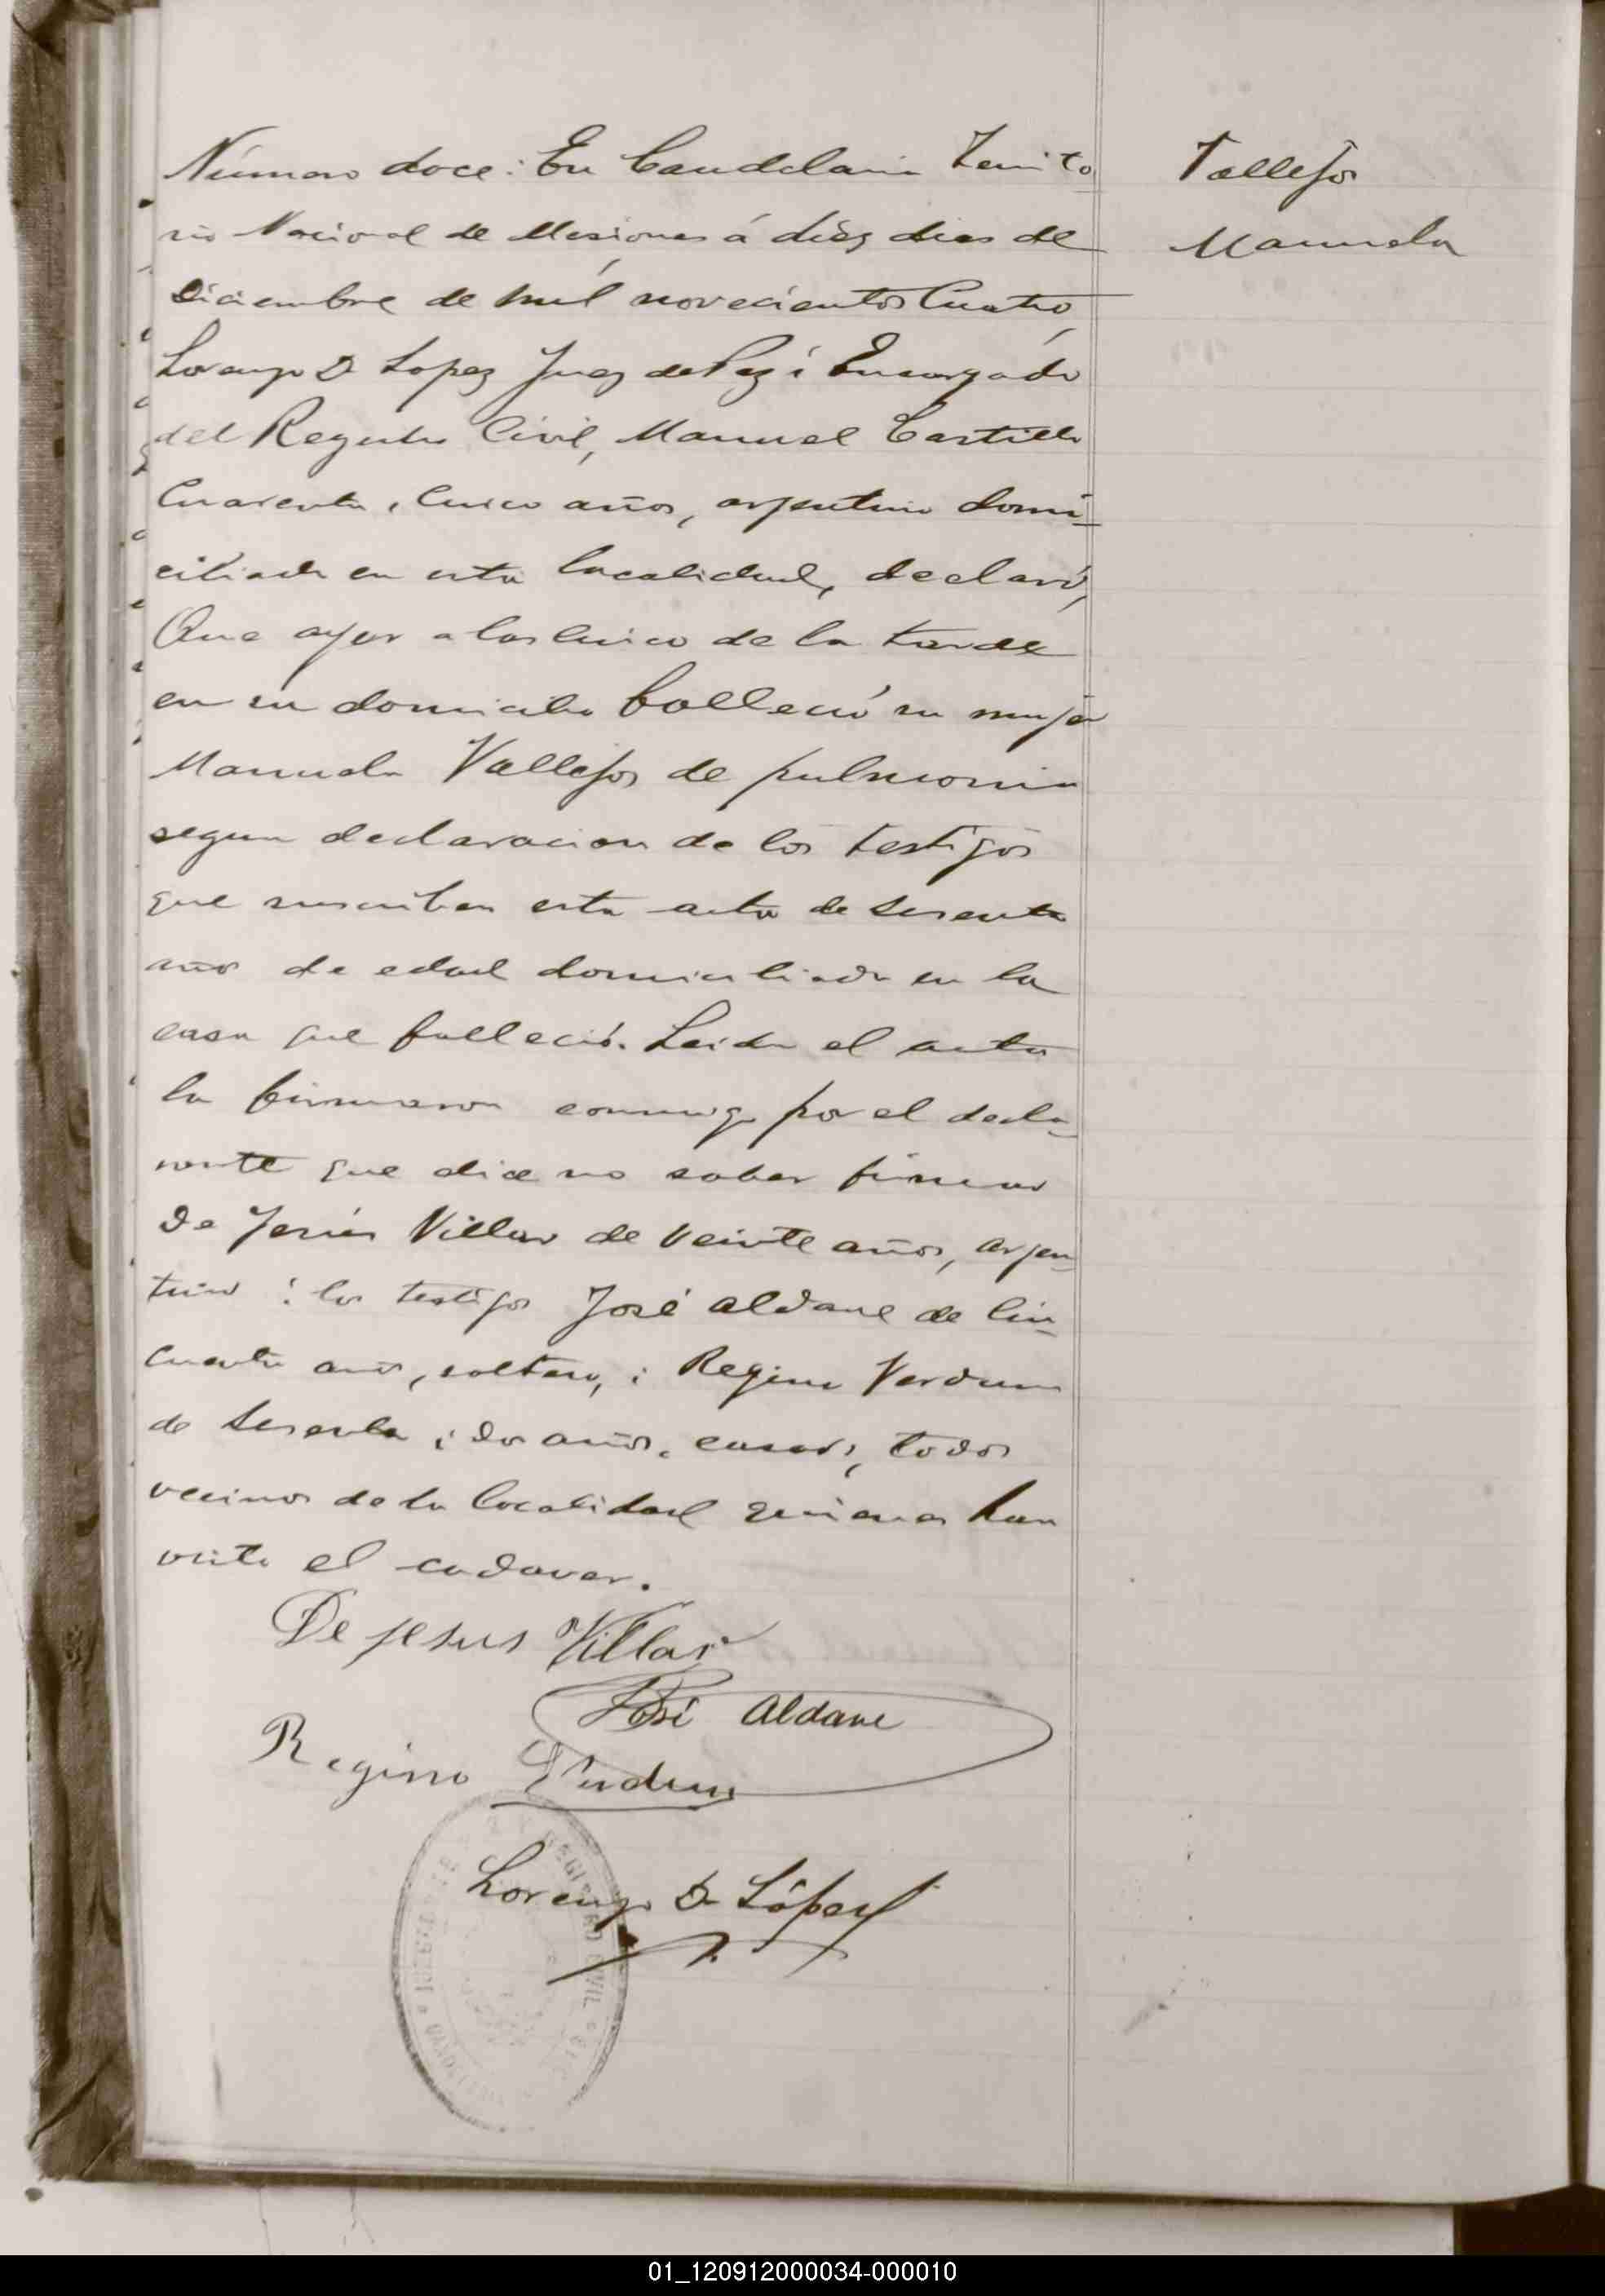 Número doce: En Candelaria Territo
Vallejos
rio Nacional de Misiones á diés dias de
Manuela
Diciembre de mil novecientos Cuatro,
Lorenzo D Lopez Juez de Paz i Encargado
del Registro Civil, Manuel Castillo
Cuarenta i Cinco años, argentino domi-
ciliado en esta localidad, declaró,
Que ayer a las Cinco de la tarde
en su domicilio falleció su mujer
Manuela Vallejos de pulmonia
segun declaracion de los testigos
que suscriben esta acta de sesenta
años de edad domiciliada en la
casa que falleció. Leida el acta
la firmaron conmigo por el decla-
rante que dice no saber firmar
De Jesús Villar de veinte años, argen-
tino i los testigos José Aldane de Cin-
cuenta años, soltero, i Regino Verdum
de sesenta i dos años, casado, todos
vecinos de la localidad quienes han
visto el cadaver.
De jesus Villar
José Aldane
Regino Verdum
Lorenzo D. López
REGISTRO CIVIL
01_120912000034-000010